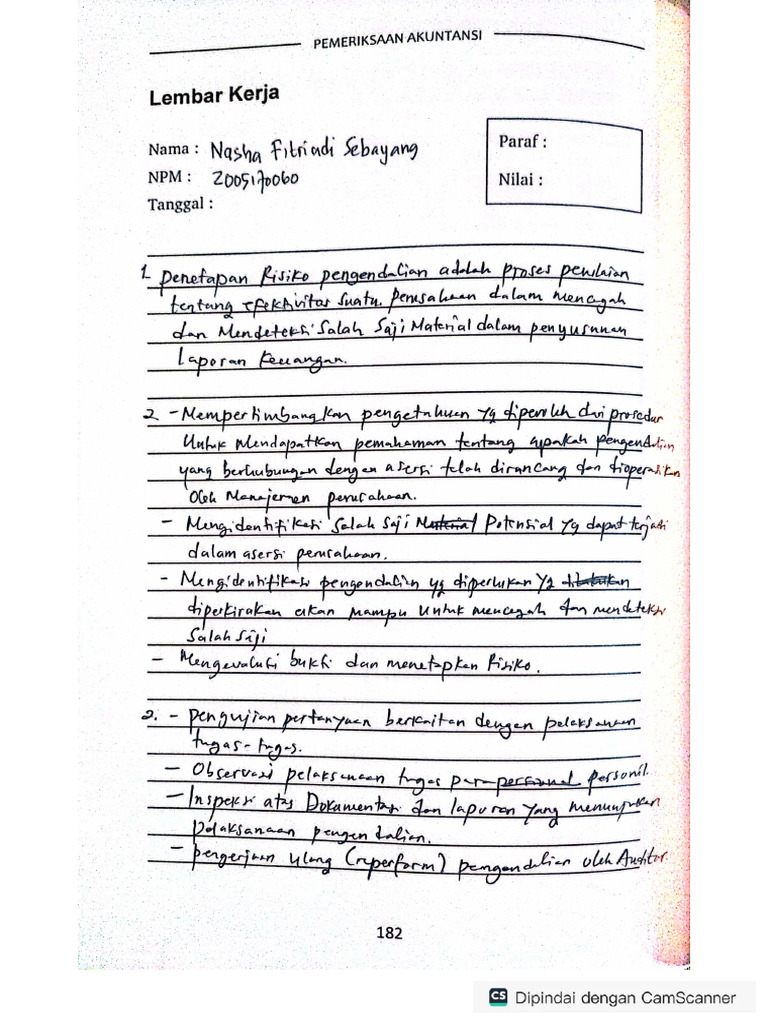 PEMERIKSAAN AKUNTANSI
Lembar Kerja
Nama : Nasha Fitriadi Sebayang
NPM : 2005170060
Tanggal :
Paraf :
Nilai :
1. Penetapan Risiko pengendalian adalah proses penilaian
tentang efektivitas suatu perusahaan dalam mencegah
dan Mendeteksi Salah Saji Material dalam penyusunan
Laporan Keuangan.
2. - Mempertimbangkan pengetahuan yg diperoleh dari prosedur
Untuk Mendapatkan pemahaman tentang apakah pengendalian
yang berhubungan dengan asersi telah dirancang dan dioperasikan
oleh Manajemen perusahaan.
- Mengidentifikasi Salah Saji Material Potensial yg dapat terjadi
dalam asersi perusahaan.
- Mengidentifikasi pengendalian yg diperlukan yg
diperkirakan akan mampu untuk mencegah dan mendeteksi
Salah Saji
- Mengevaluasi bukti dan menetapkan Risiko.
3. - pengujian pertanyaan berkaitan dengan pelaksanaan
tugas-tugas.
- Observasi pelaksanaan tugas para personal personil.
- Inspeksi atas Dokumentasi dan laporan yang menunjukan
pelaksanaan pengendalian.
- pengerjaan ulang (reperform) pengendalian oleh Auditor.
182
CS Dipindai dengan CamScanner